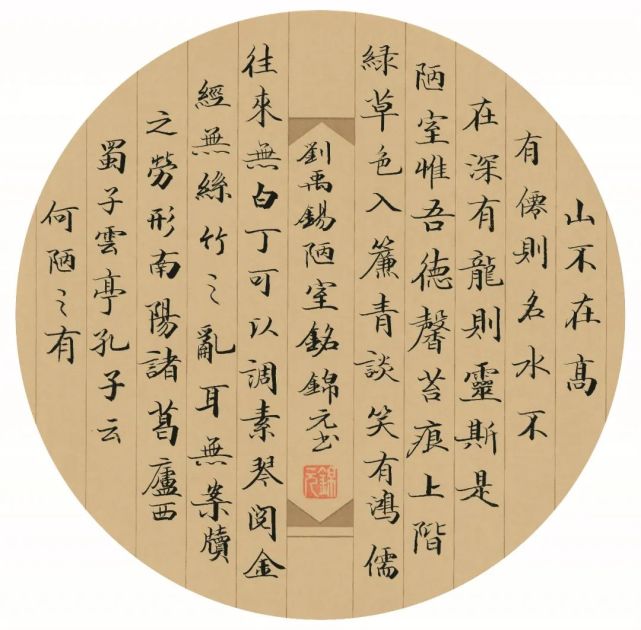 山不在髙
有僊則名水不
在深有龍則靈斯是
陋室惟吾德馨苔痕上階
緑草色入簾青談笑有鴻儒
劉禹錫陋室銘錦元书
錦元
往來無白丁可以調素琴閲金
經無絲竹之亂耳無案牘
之勞形南陽諸葛廬西
蜀子雲亭孔子云
何陋之有